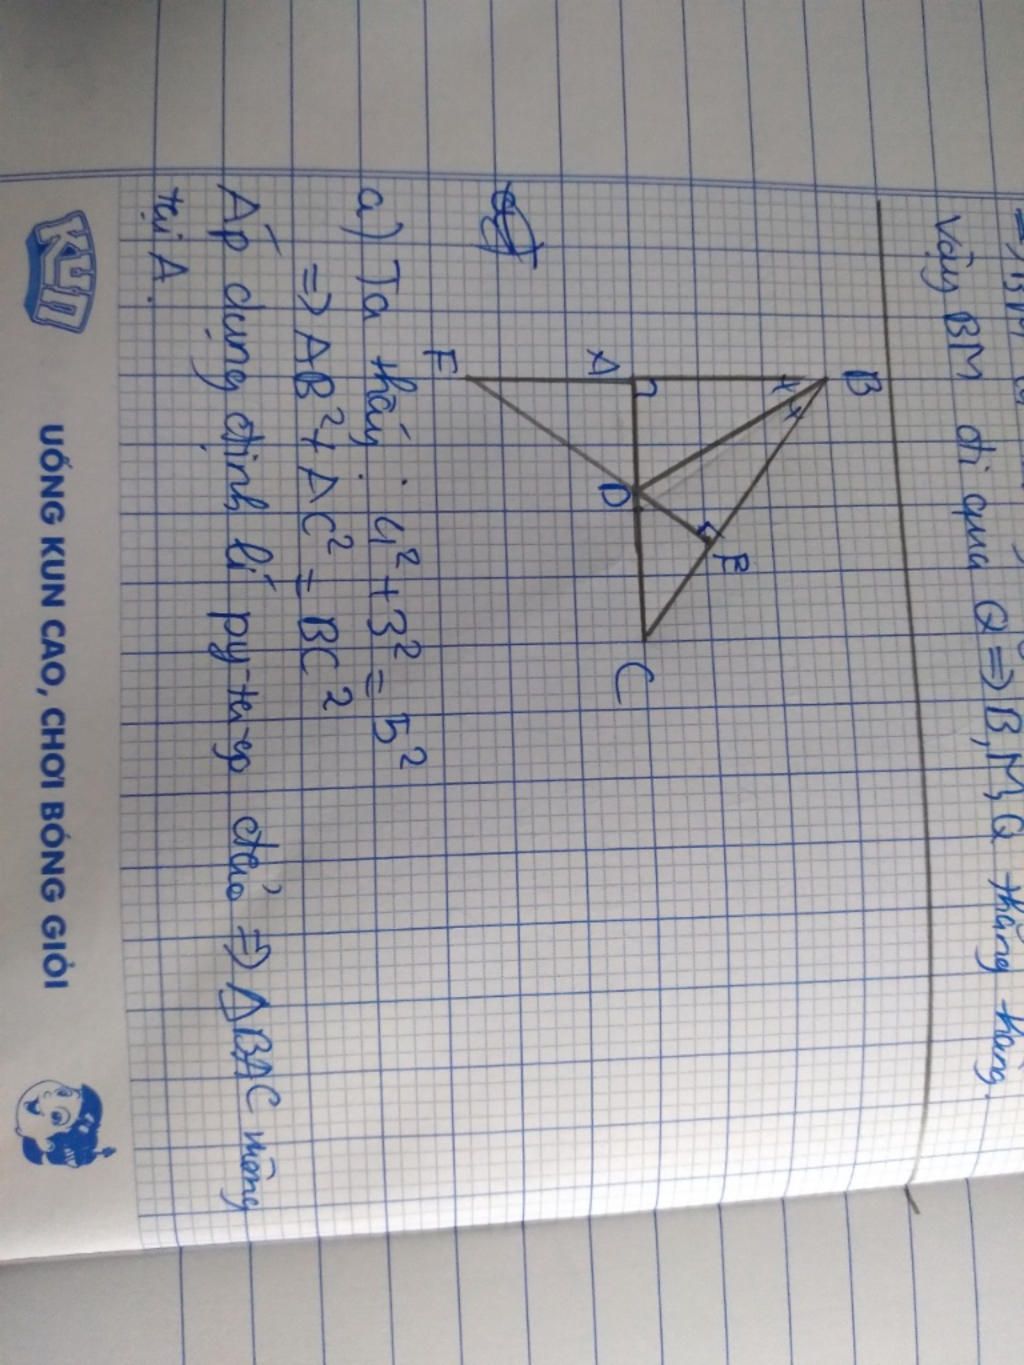 Vậy BM đi qua Q => B, M, Q thẳng hàng.
B
E
A
D
C
F
a) Ta thấy: 4² + 3² = 5²
=> AB² + AC² = BC²
Áp dụng định lí py-ta-go đảo => Δ BAC vuông
tại A.
KUN
UỐNG KUN CAO, CHƠI BÓNG GIỎI